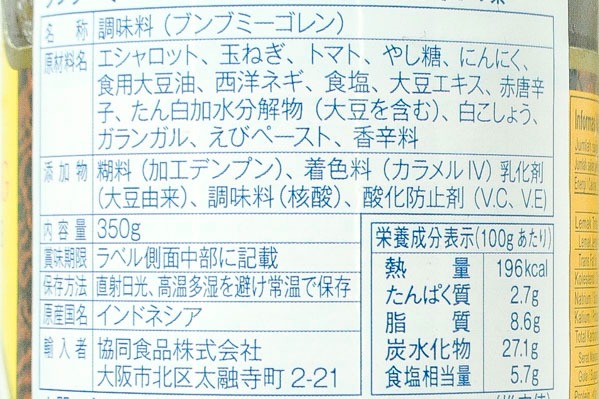 名称 調味料（ブンブミーゴレン）
原材料名 エシャロット、玉ねぎ、トマト、やし糖、にんにく、
食用大豆油、西洋ネギ、食塩、大豆エキス、赤唐辛
子、たん白加水分解物（大豆を含む）、白こしょう、
ガランガル、えびペースト、香辛料
添加物 糊料（加工デンプン）、着色料（カラメルⅣ）乳化剤
（大豆由来）、調味料（核酸）、酸化防止剤（V.C、V.E）
内容量 350g
賞味期限 ラベル側面中部に記載
保存方法 直射日光、高温多湿を避け常温で保存
原産国名 インドネシア
輸入者 協同食品株式会社
大阪市北区太融寺町2-21
栄養成分表示（100gあたり）
熱量 196kcal
たんぱく質 2.7g
脂質 8.6g
炭水化物 27.1g
食塩相当量 5.7g